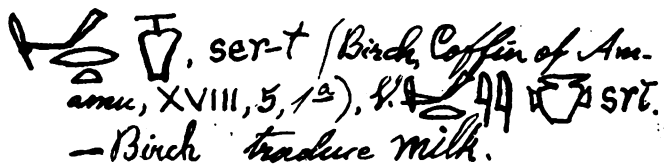 , ser-t (Birch, Coffin of Am-
amu, XVIII, 5, 1ª), V. srt.
—Birch traduce milk.